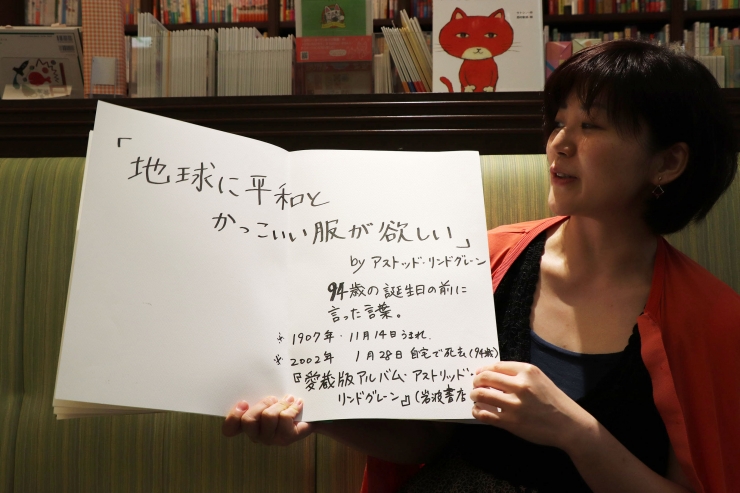 「地球に平和と
かっこいい服が欲しい」
by アストッド・リンドグレーン
94歳の誕生日の前に
言った言葉。
※ 1907年・11月14日うまれ.
※ 2002年 1月28日 自宅で死去(94歳)
『愛蔵版アルバム・アストリッド・
リンドグレーン』(岩波書店